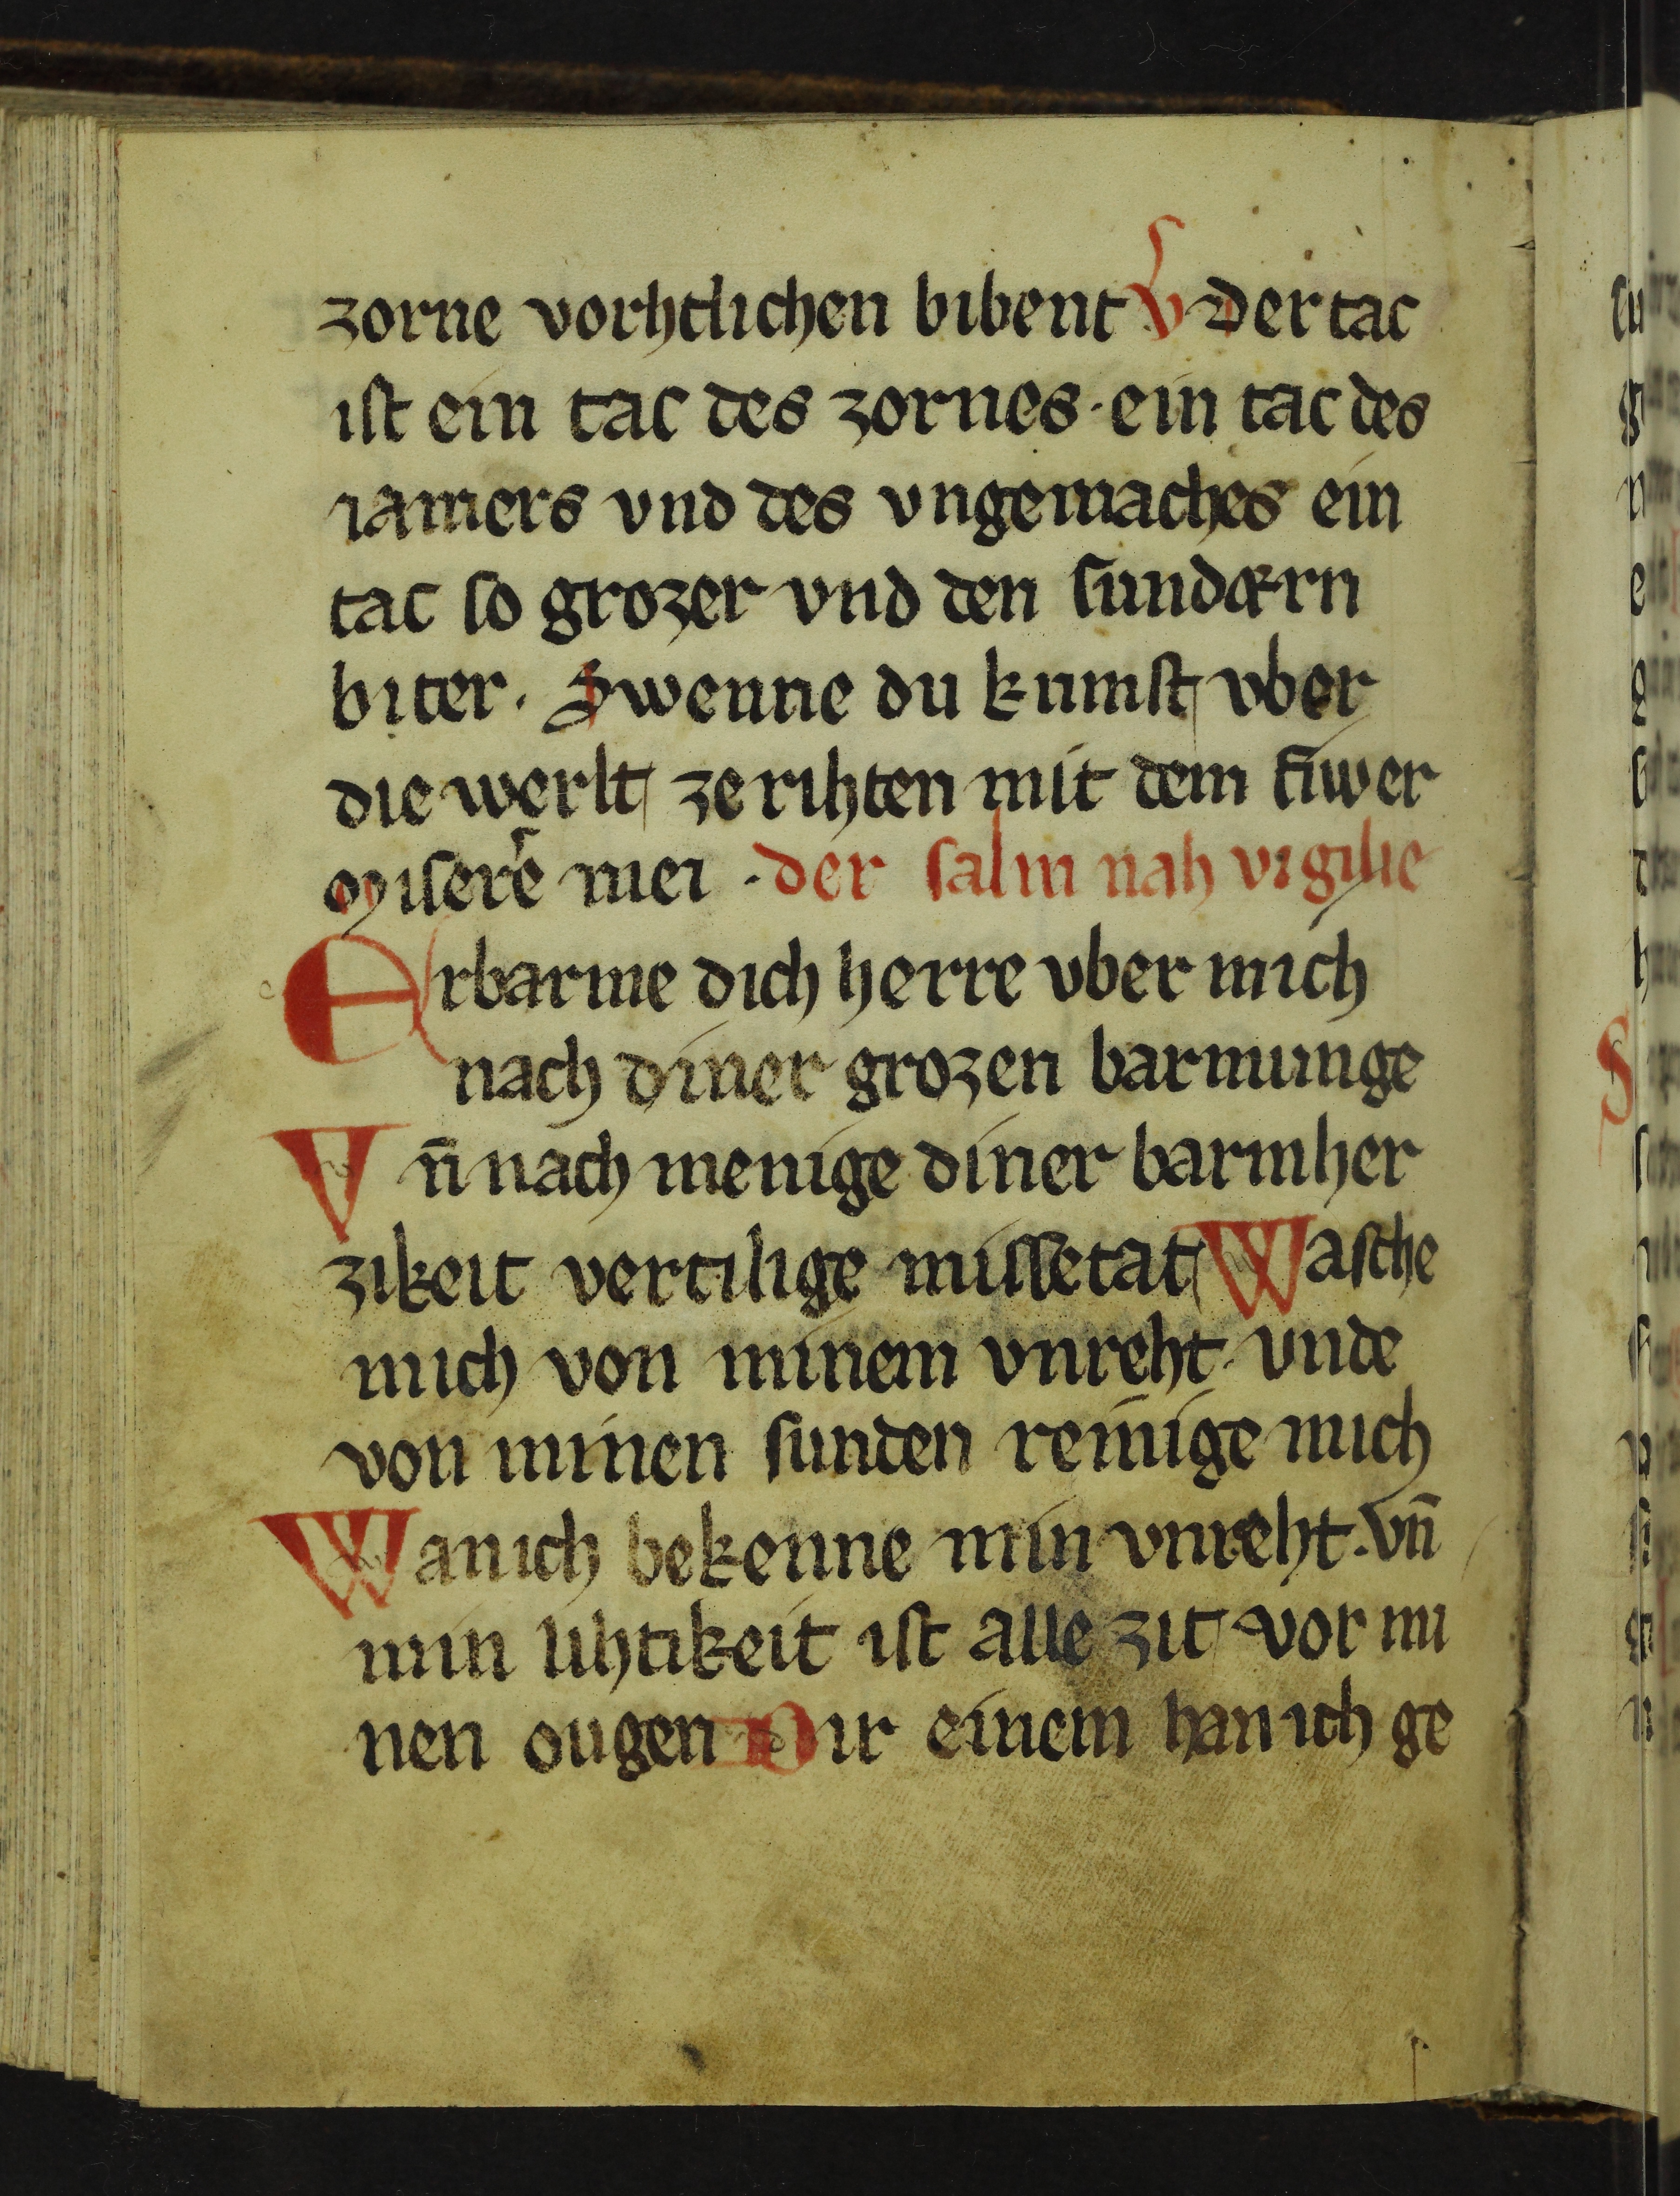 zorne vorhtlichen bibent V der tac
ist ein tac des zornes · ein tac des
iamers vnd des vngemaches ein
tac so grozer vnd den sundærn
biter · Swenne du kumst vber
die werlt ze rihten mit dem fiwer
Misere mei · der salm nah vigilie
Erbarme dich herre vber mich
nach diner grozen barmunge
Vn̄ nach menige diner barmher
zikeit vertilige missetat Wasche
mich von minem vnreht · vnde
von minen sunden reinige mich
Wan ich bekenne min vnreht · vn̄
min lihtikeit ist alle zit vor mi
nen ougen Dir einem han ich ge